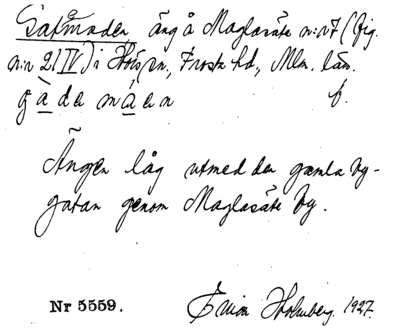 Gatåmaden, äng å Maglasäte n:r 7 (fig.
n:r 21 IV) i Hörs sn., Frosta hd., Mlm. län.
gàdemáen f.
Ängen låg utmed den gamla by-
gatan genom Maglasäte by.
Nr 5559. Holmberg. 1927.